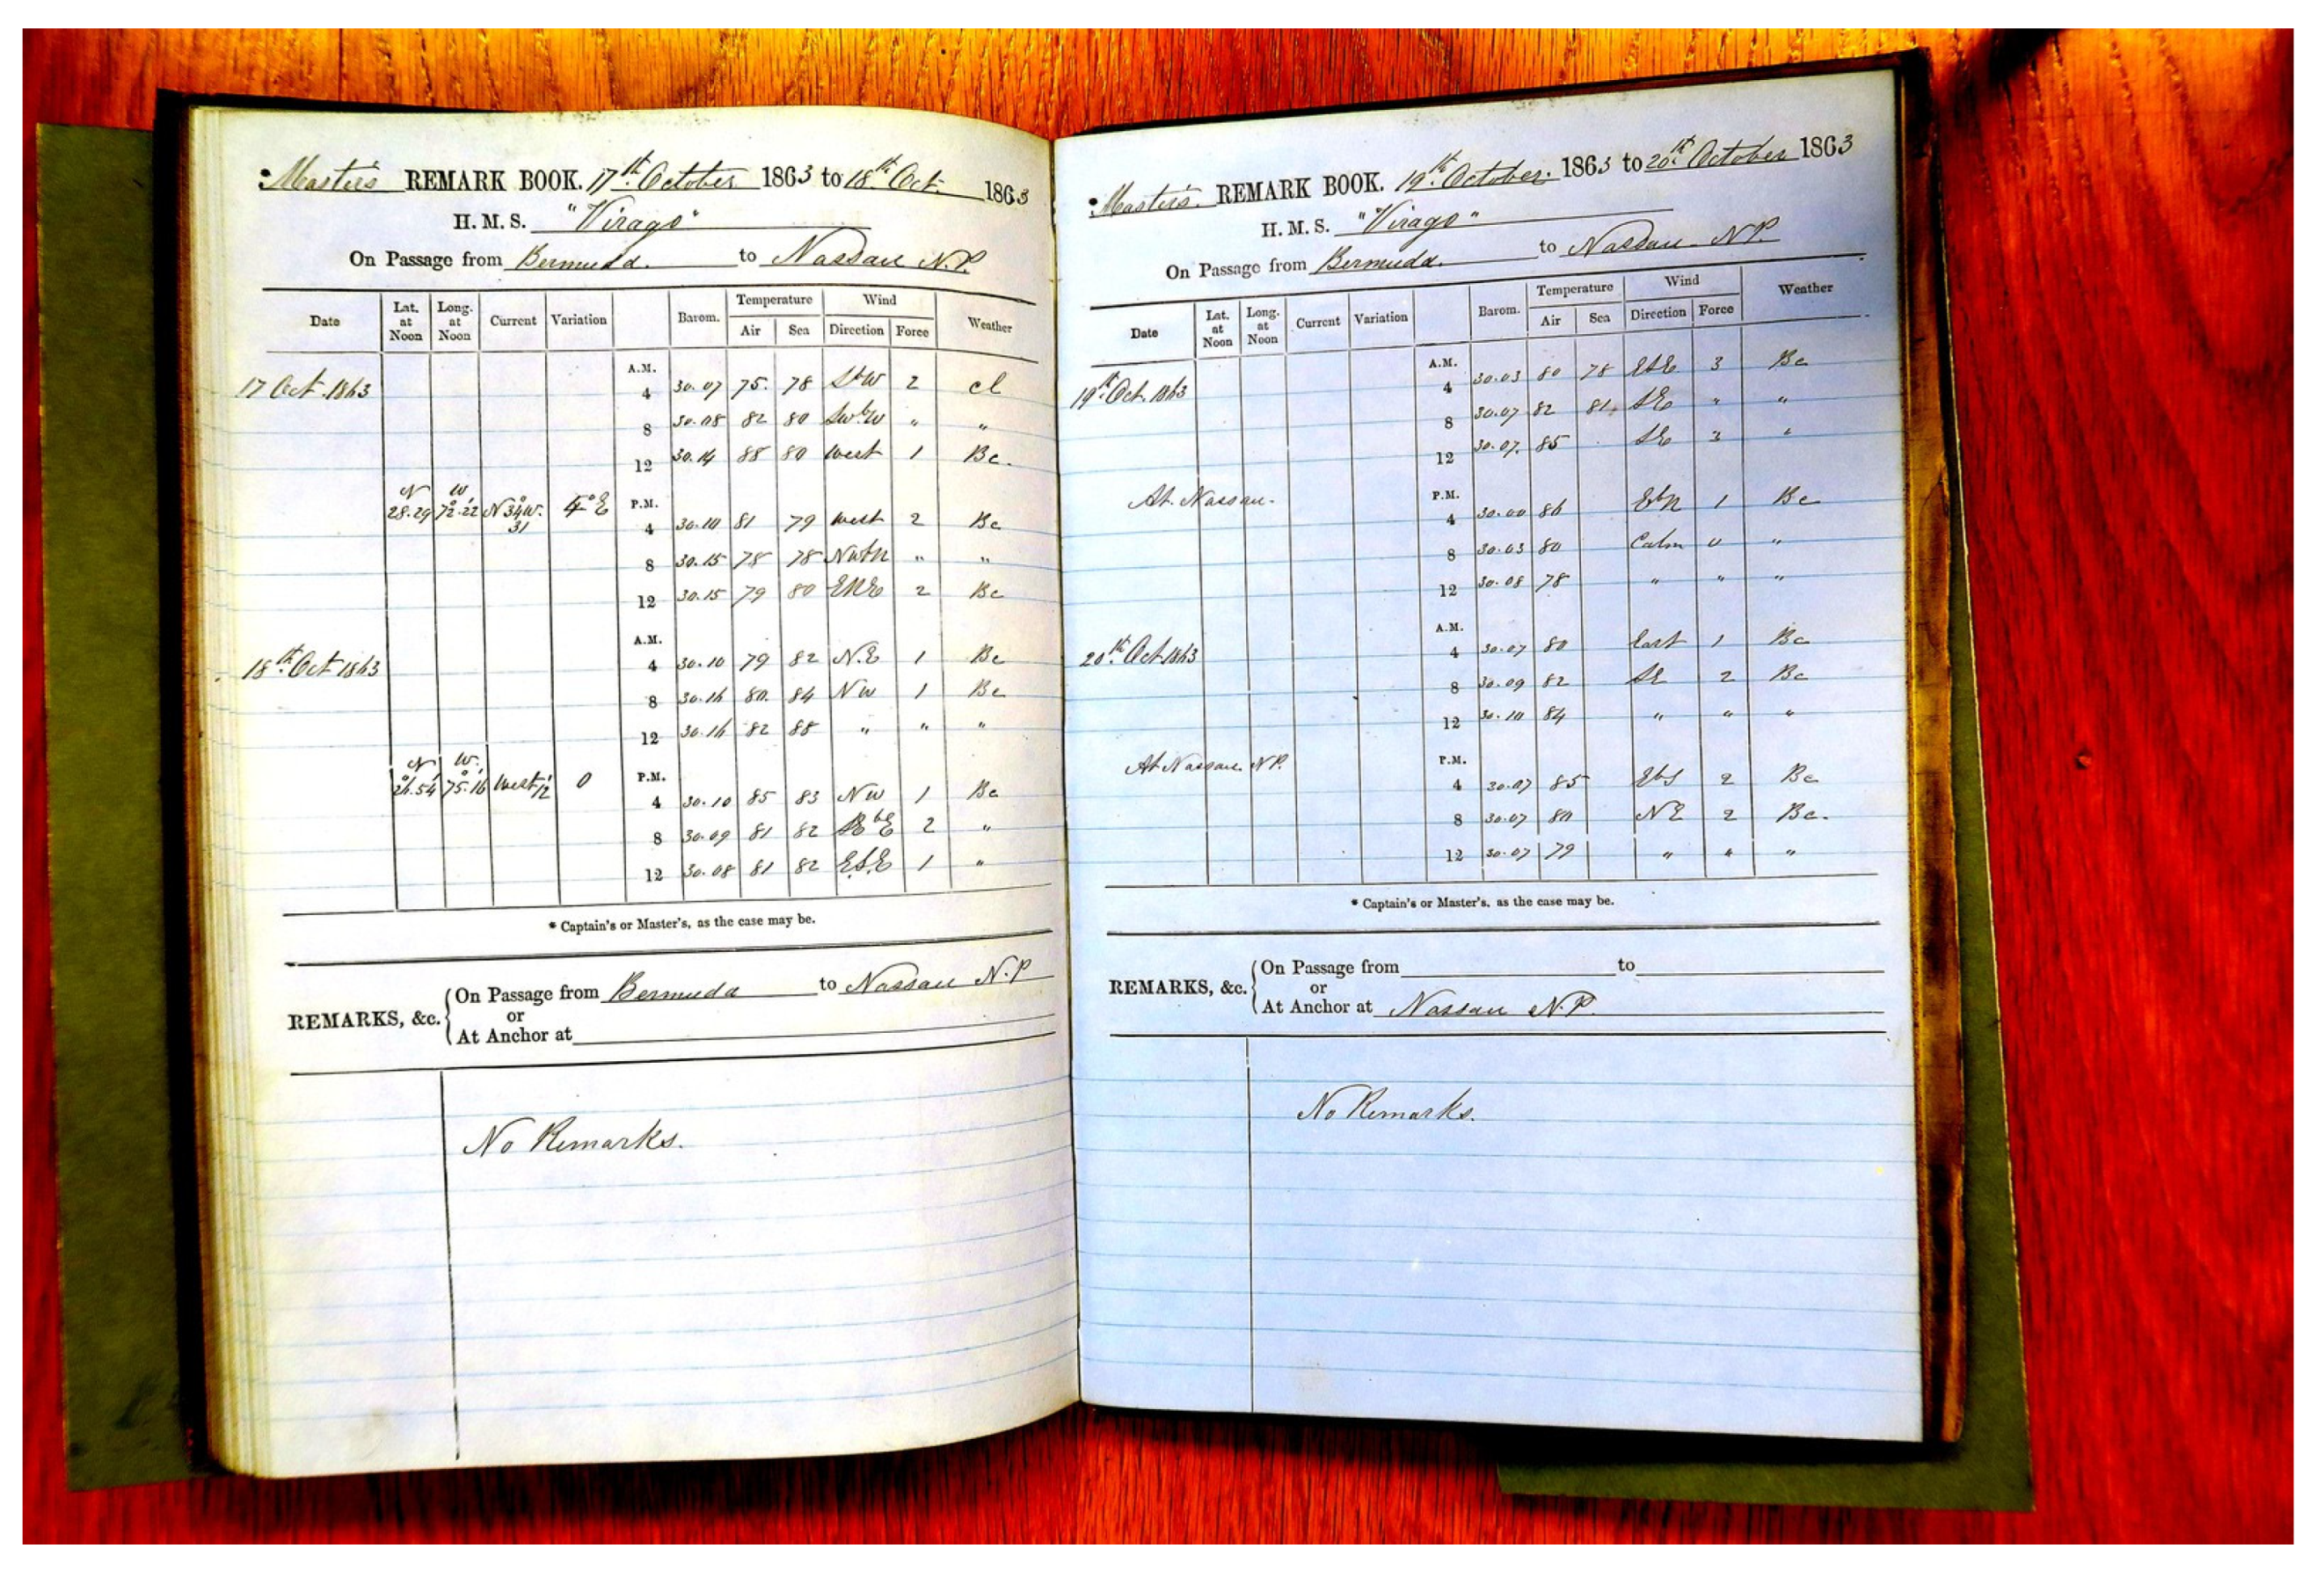 *Master's REMARK BOOK. 17th October 1863 to 18th Oct. 1863
H. M. S. "Virago"
On Passage from Bermuda. to Nassau N.P.
Date Lat. at Noon Long. at Noon Current Variation Barom. Temperature Air Sea Wind Direction Force Weather
A.M.
17 Oct. 1863 4 30.07 75. 78 SbW 2 cl
8 30.08 82 80 SWbW " "
12 30.14 88 80 West 1 Bc.
N W
28.29 72.22 N34W. 31 4°E P.M.
4 30.10 81 79 West 2 Bc
8 30.15 78 78 NWbN " "
12 30.15 79 80 ENE 2 Bc
A.M.
18th Oct 1863 4 30.10 79 82 N.E 1 Bc
8 30.16 80. 84 NW 1 Bc
12 30.16 82 88 " " "
N W.
26.54 75.16 West 12 0 P.M.
4 30.10 85 83 NW 1 Bc
8 30.09 81 82 SEbE 2 "
12 30.08 81 82 E.S.E 1 "
* Captain's or Master's, as the case may be.
REMARKS, &c. On Passage from Bermuda to Nassau N.P
or
At Anchor at
No Remarks.
*Master's. REMARK BOOK. 19th October. 1863 to 20th October 1863
H. M. S. "Virago"
On Passage from Bermuda. to Nassau N.P.
Date Lat. at Noon Long. at Noon Current Variation Barom. Temperature Air Sea Wind Direction Force Weather
A.M.
19th Oct. 1863 4 30.03 80 78 ESE 3 Bc
8 30.07 82 81. SE " "
12 30.07. 85 SE 3 "
At Nassau. P.M.
4 30.00 86 EbN 1 Bc
8 30.03 80 Calm 0 "
12 30.08 78 " " "
A.M.
20th Oct 1863 4 30.07 80 East 1 Bc
8 30.09 82 SE 2 Bc
12 30.10 84 " " "
At Nassau. N.P. P.M.
4 30.07 85 EbS 2 Bc
8 30.07 80 NE 2 Bc.
12 30.07 79 " " "
* Captain's or Master's, as the case may be.
REMARKS, &c. On Passage from to
or
At Anchor at Nassau N.P.
No Remarks.